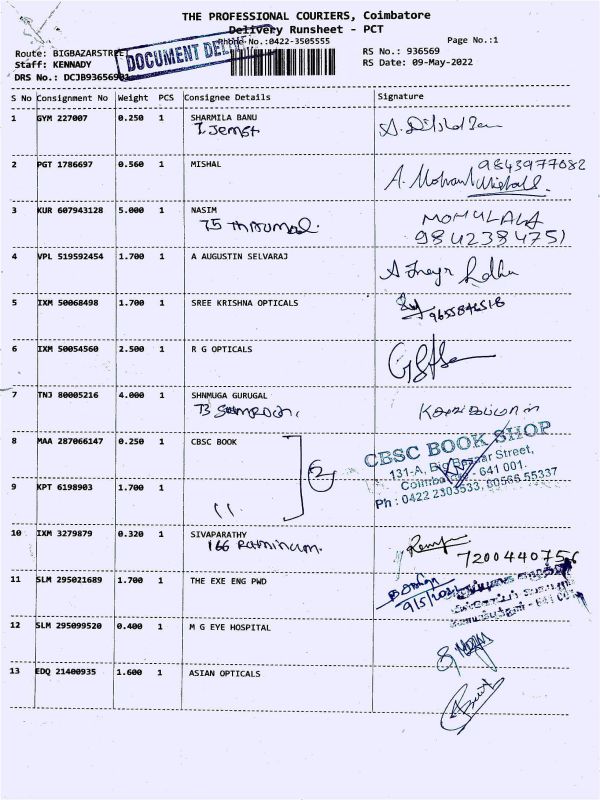 THE PROFESSIONAL COURIERS, Coimbatore
Delivery Runsheet - PCT
Phone No.:0422-3505555
Page No.:1
Route: BIGBAZARSTREET
RS No.: 936569
Staff: KENNADY
DOCUMENT DEL
RS Date: 09-May-2022
DRS No.: DCJB93656901
S No Consignment No Weight PCS Consignee Details Signature
1 GYM 227007 0.250 1 SHARMILA BANU
2 PGT 1786697 0.560 1 MISHAL
9843977082
A. Mohamed
3 KUR 607943128 5.000 1 NASIM
9842384751
4 VPL 519592454 1.700 1 A AUGUSTIN SELVARAJ
5 IXM 50068498 1.700 1 SREE KRISHNA OPTICALS
6 IXM 50054560 2.500 1 R G OPTICALS
7 TNJ 80005216 4.000 1 SHNMUGA GURUGAL
8 MAA 287066147 0.250 1 CBSC BOOK
2
CBSC BOOK SHOP
131-A, Big Bazaar Street,
Coimbatore - 641 001.
Ph : 0422 2303533, 80566 55337
9 KPT 6198903 1.700 1
10 IXM 3279879 0.320 1 SIVAPARATHY
7200440756
11 SLM 295021689 1.700 1 THE EXE ENG PWD
12 SLM 295099520 0.400 1 M G EYE HOSPITAL
13 EDQ 21400935 1.600 1 ASIAN OPTICALS